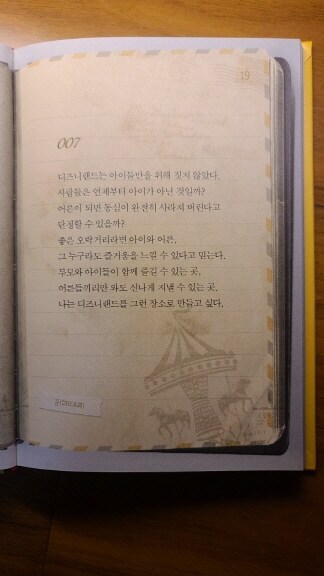 19
007
디즈니랜드는 아이들만을 위해 짓지 않았다.
사람들은 언제부터 아이가 아닌 것일까?
어른이 되면 동심이 완전히 사라져 버린다고
단정할 수 있을까?
좋은 오락거리라면 아이와 어른,
그 누구라도 즐거움을 느낄 수 있다고 믿는다.
부모와 아이들이 함께 즐길 수 있는 곳,
어른들끼리만 와도 신나게 지낼 수 있는 곳,
나는 디즈니랜드를 그런 장소로 만들고 싶다.